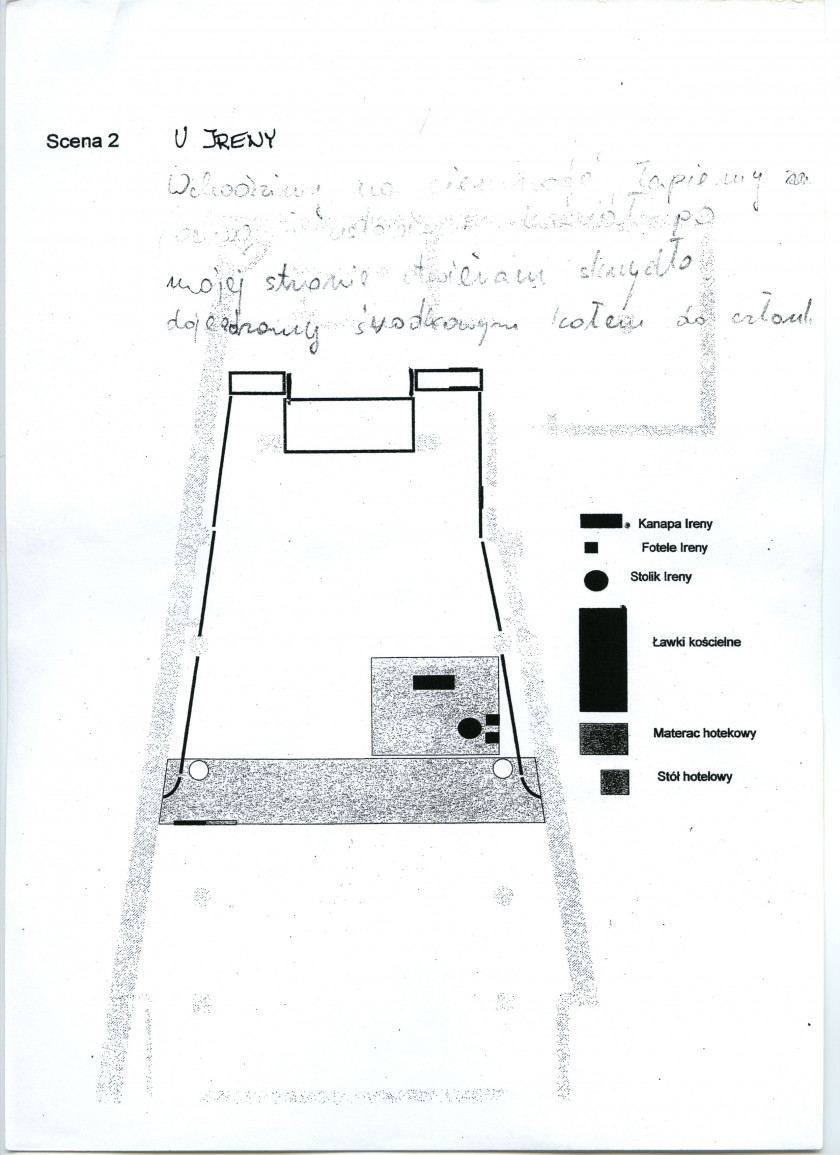 Scena 2 U IRENY
Wchodzimy na ciemność. Łapiemy za
po
mojej stronie otwieram skrzydło
dojeżdzamy środkowym kołem do
Kanapa Ireny
Fotele Ireny
Stolik Ireny
Ławki kościelne
Materac hotekowy
Stół hotelowy